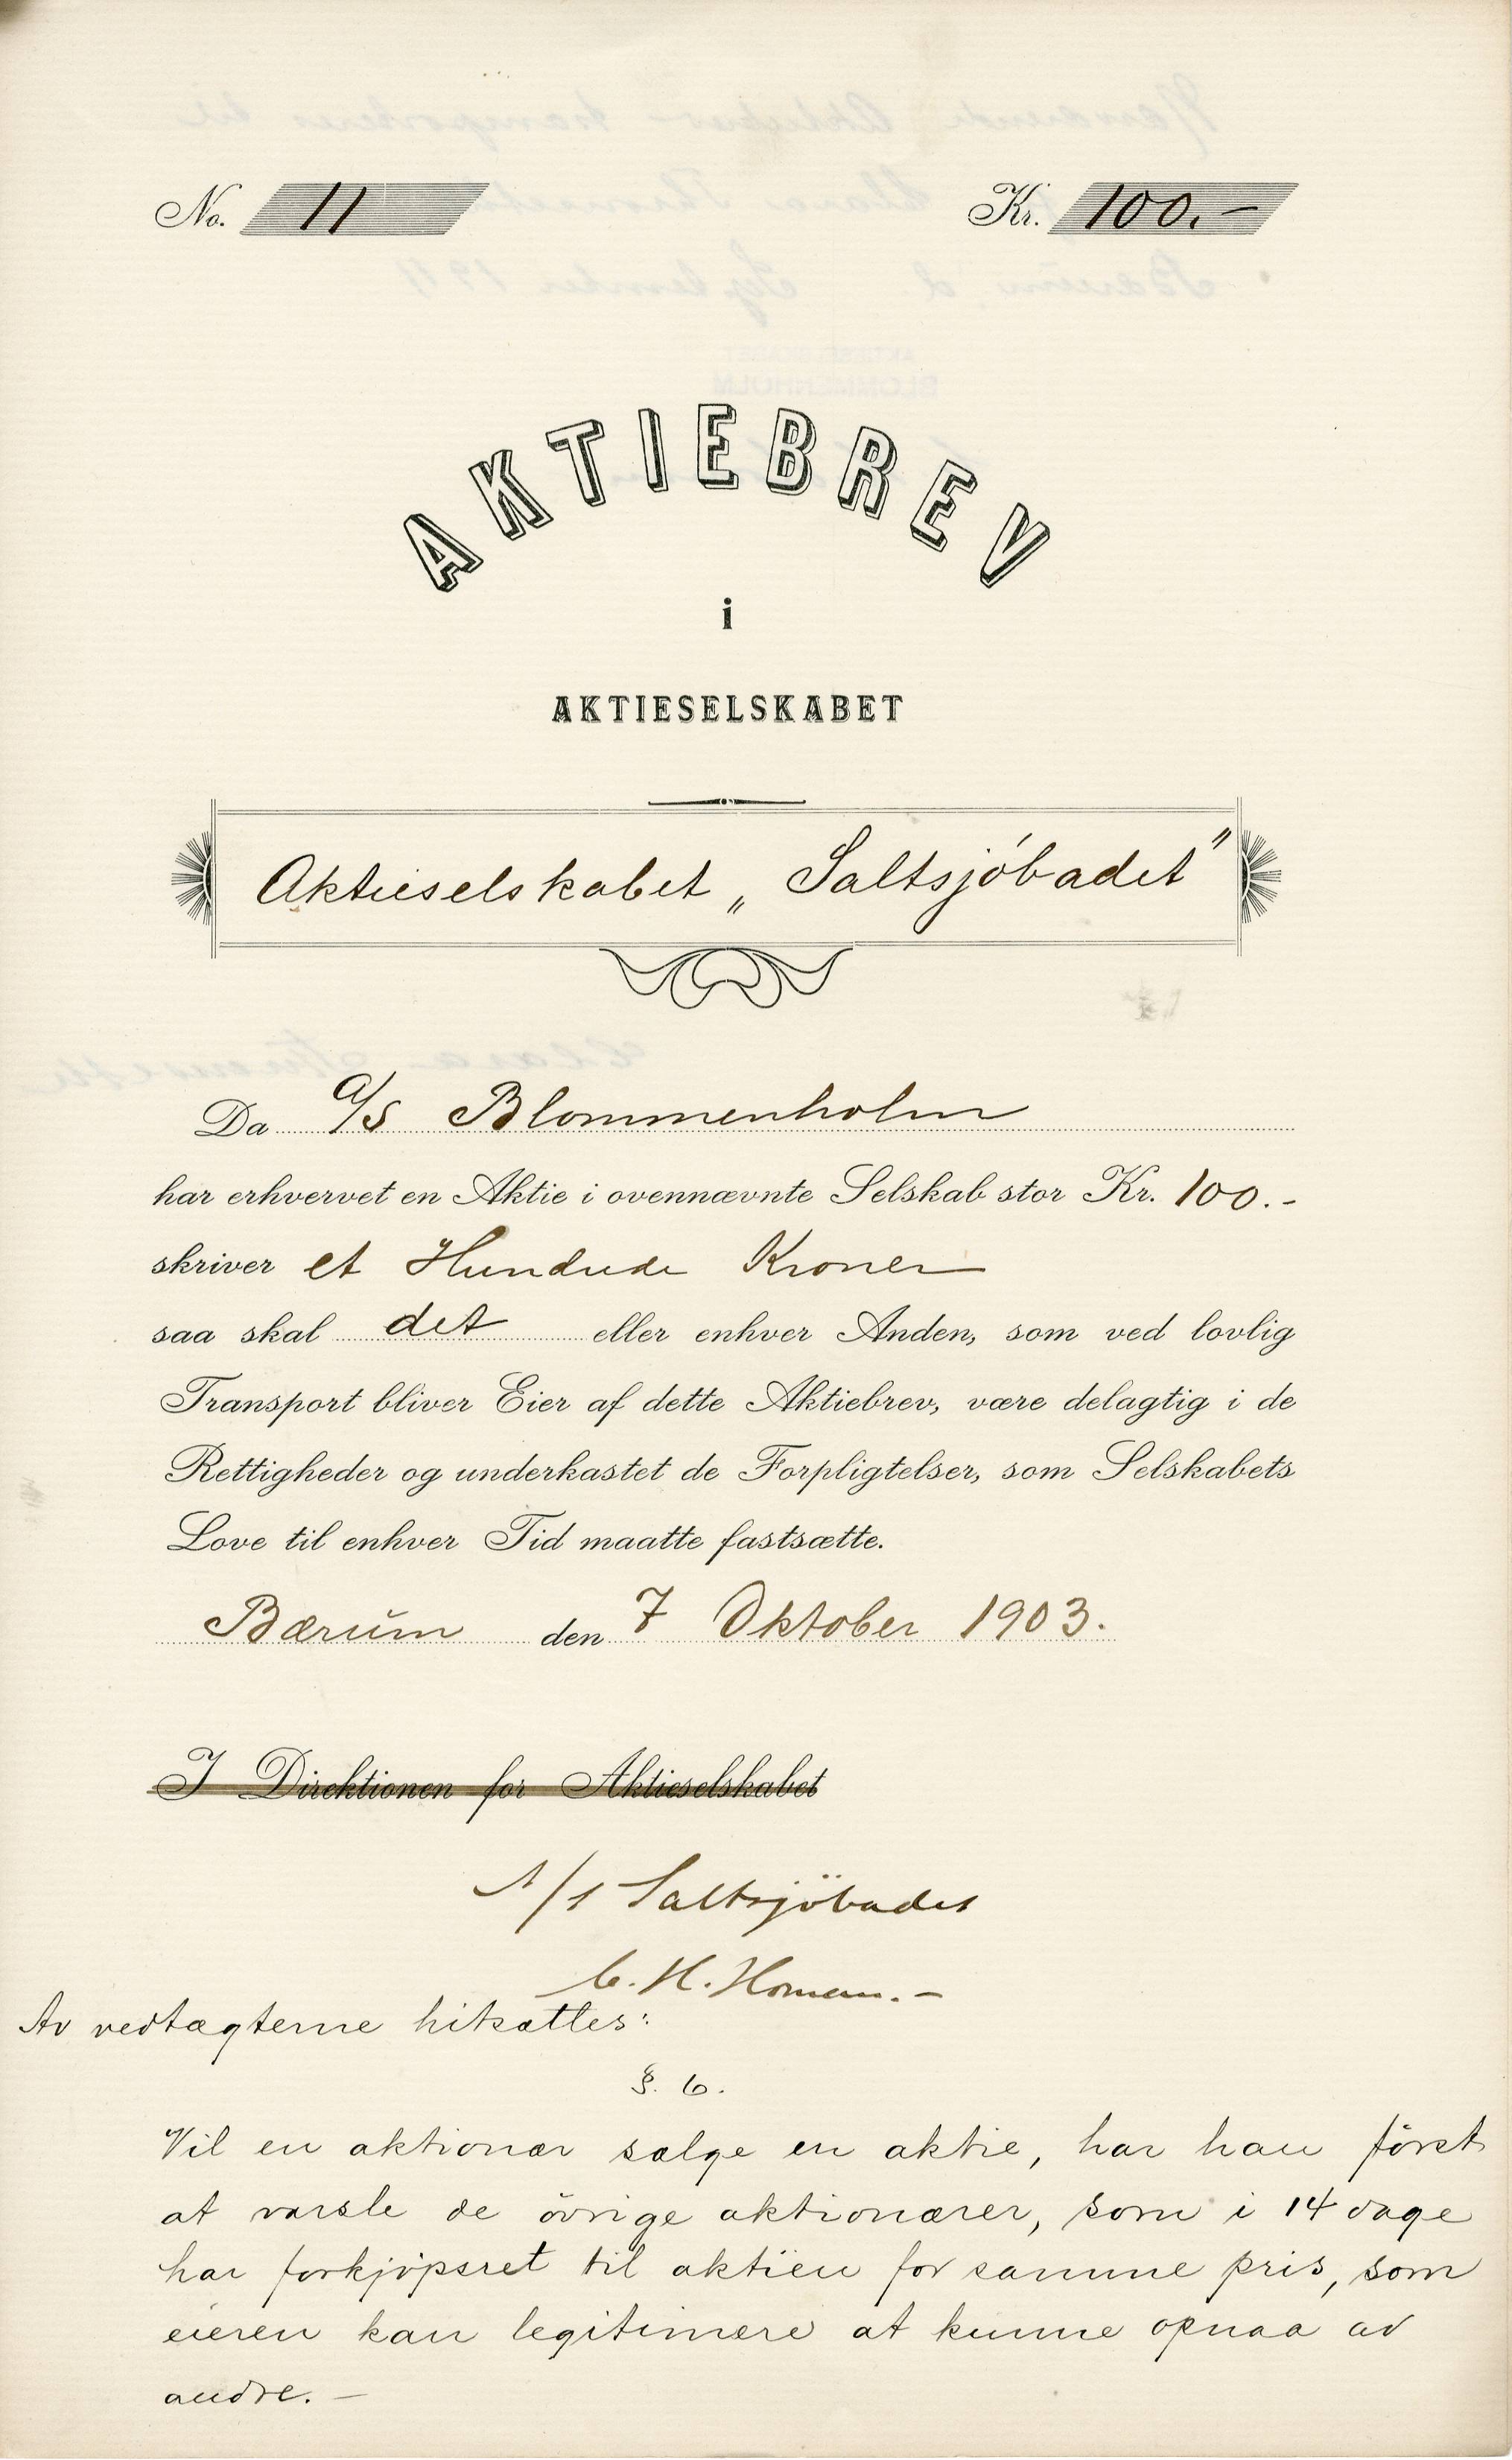 No. 11 Kr. 100.-
AKTIEBREV
i
AKTIESELSKABET
Aktieselskabet „Saltsjöbadet”
Da A/S Blommenholm
har erhvervet en Aktie i ovennævnte Selskab stor Kr. 100.-
skriver et Hundrede Kroner
saa skal det eller enhver Anden, som ved lovlig
Transport bliver Eier af dette Aktiebrev, være delagtig i de
Rettigheder og underkastet de Forpligtelser, som Selskabets
Love til enhver Tid maatte fastsætte.
Bærum den 7 Oktober 1903.
I Direktionen for Aktieselskabet
A/S Saltsjöbadet
C. H. Homan.-
Av vedtægterne hitsættes:
§. 6.
Vil en aktionær sælge en aktie, har han först
at varsle de övrige aktionærer, som i 14 dage
har forkjöpsret til aktien for samme pris, som
eieren kan legitimere at kunne opnaa av
andre. -